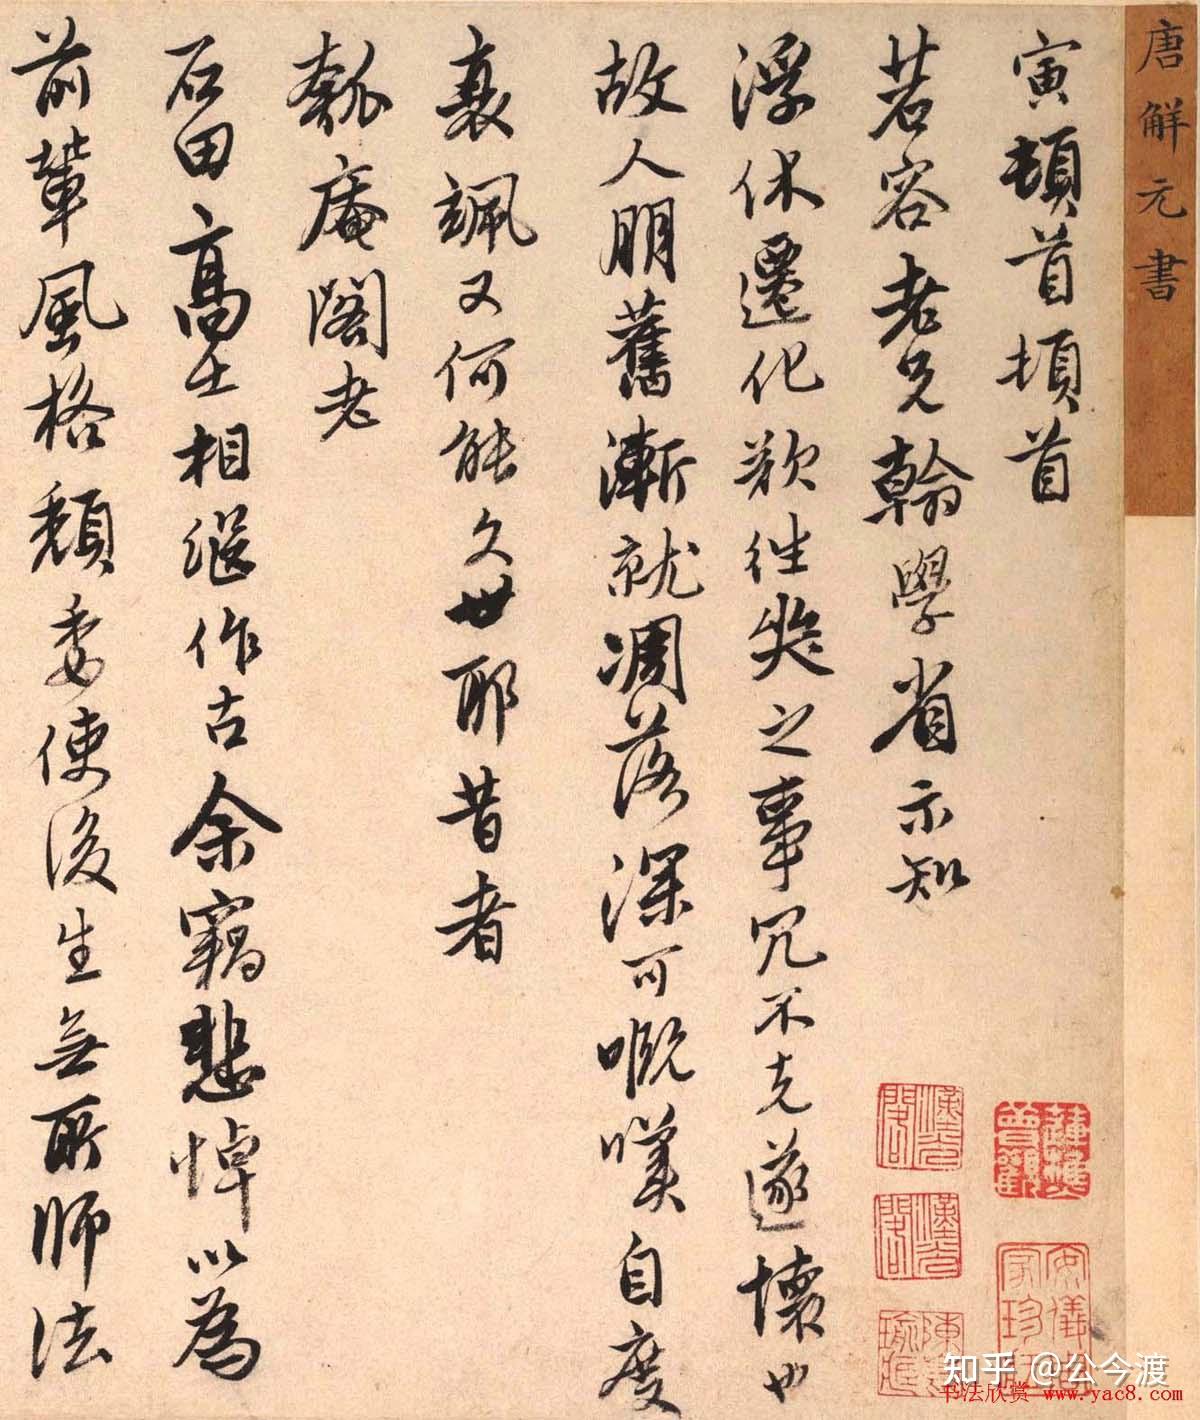 唐解元書
寅頓首頓首
若容老兄翰學省示知
浮休遷化欲往奠之事冗不克遂懷也
故人朋舊漸就凋落深可嘅嘆自度
衰颯又何能久世耶昔者
瓠庵閣老
石田高士相繼作古余竊悲悼以為
前輩風格頹委使後生無所師法
蕉林曾觀
安儀周家珍藏
知乎 @公今渡
书法欣赏 www.yac8.com